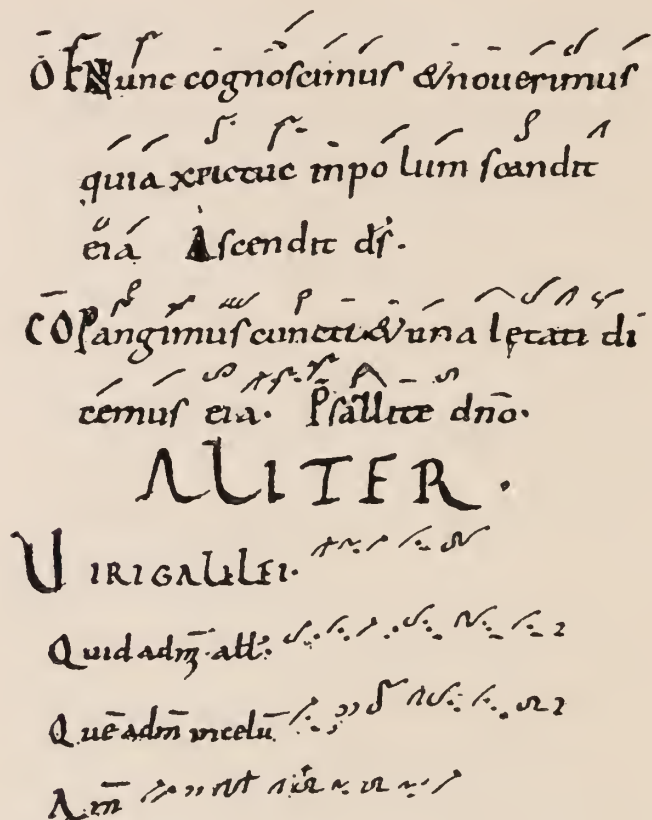 OF Nunc cognoscimus & noverimus
quia xpictuc in polum scandit
eia Ascendit ds̄.
CO Pangimus cuncti & una lętati di
cemus eia. Psallite dn̄o.
ALITER.
VIRI GALILEI.
Quid adm̄ all̄.
Quē adm̄ in celū
Am̄